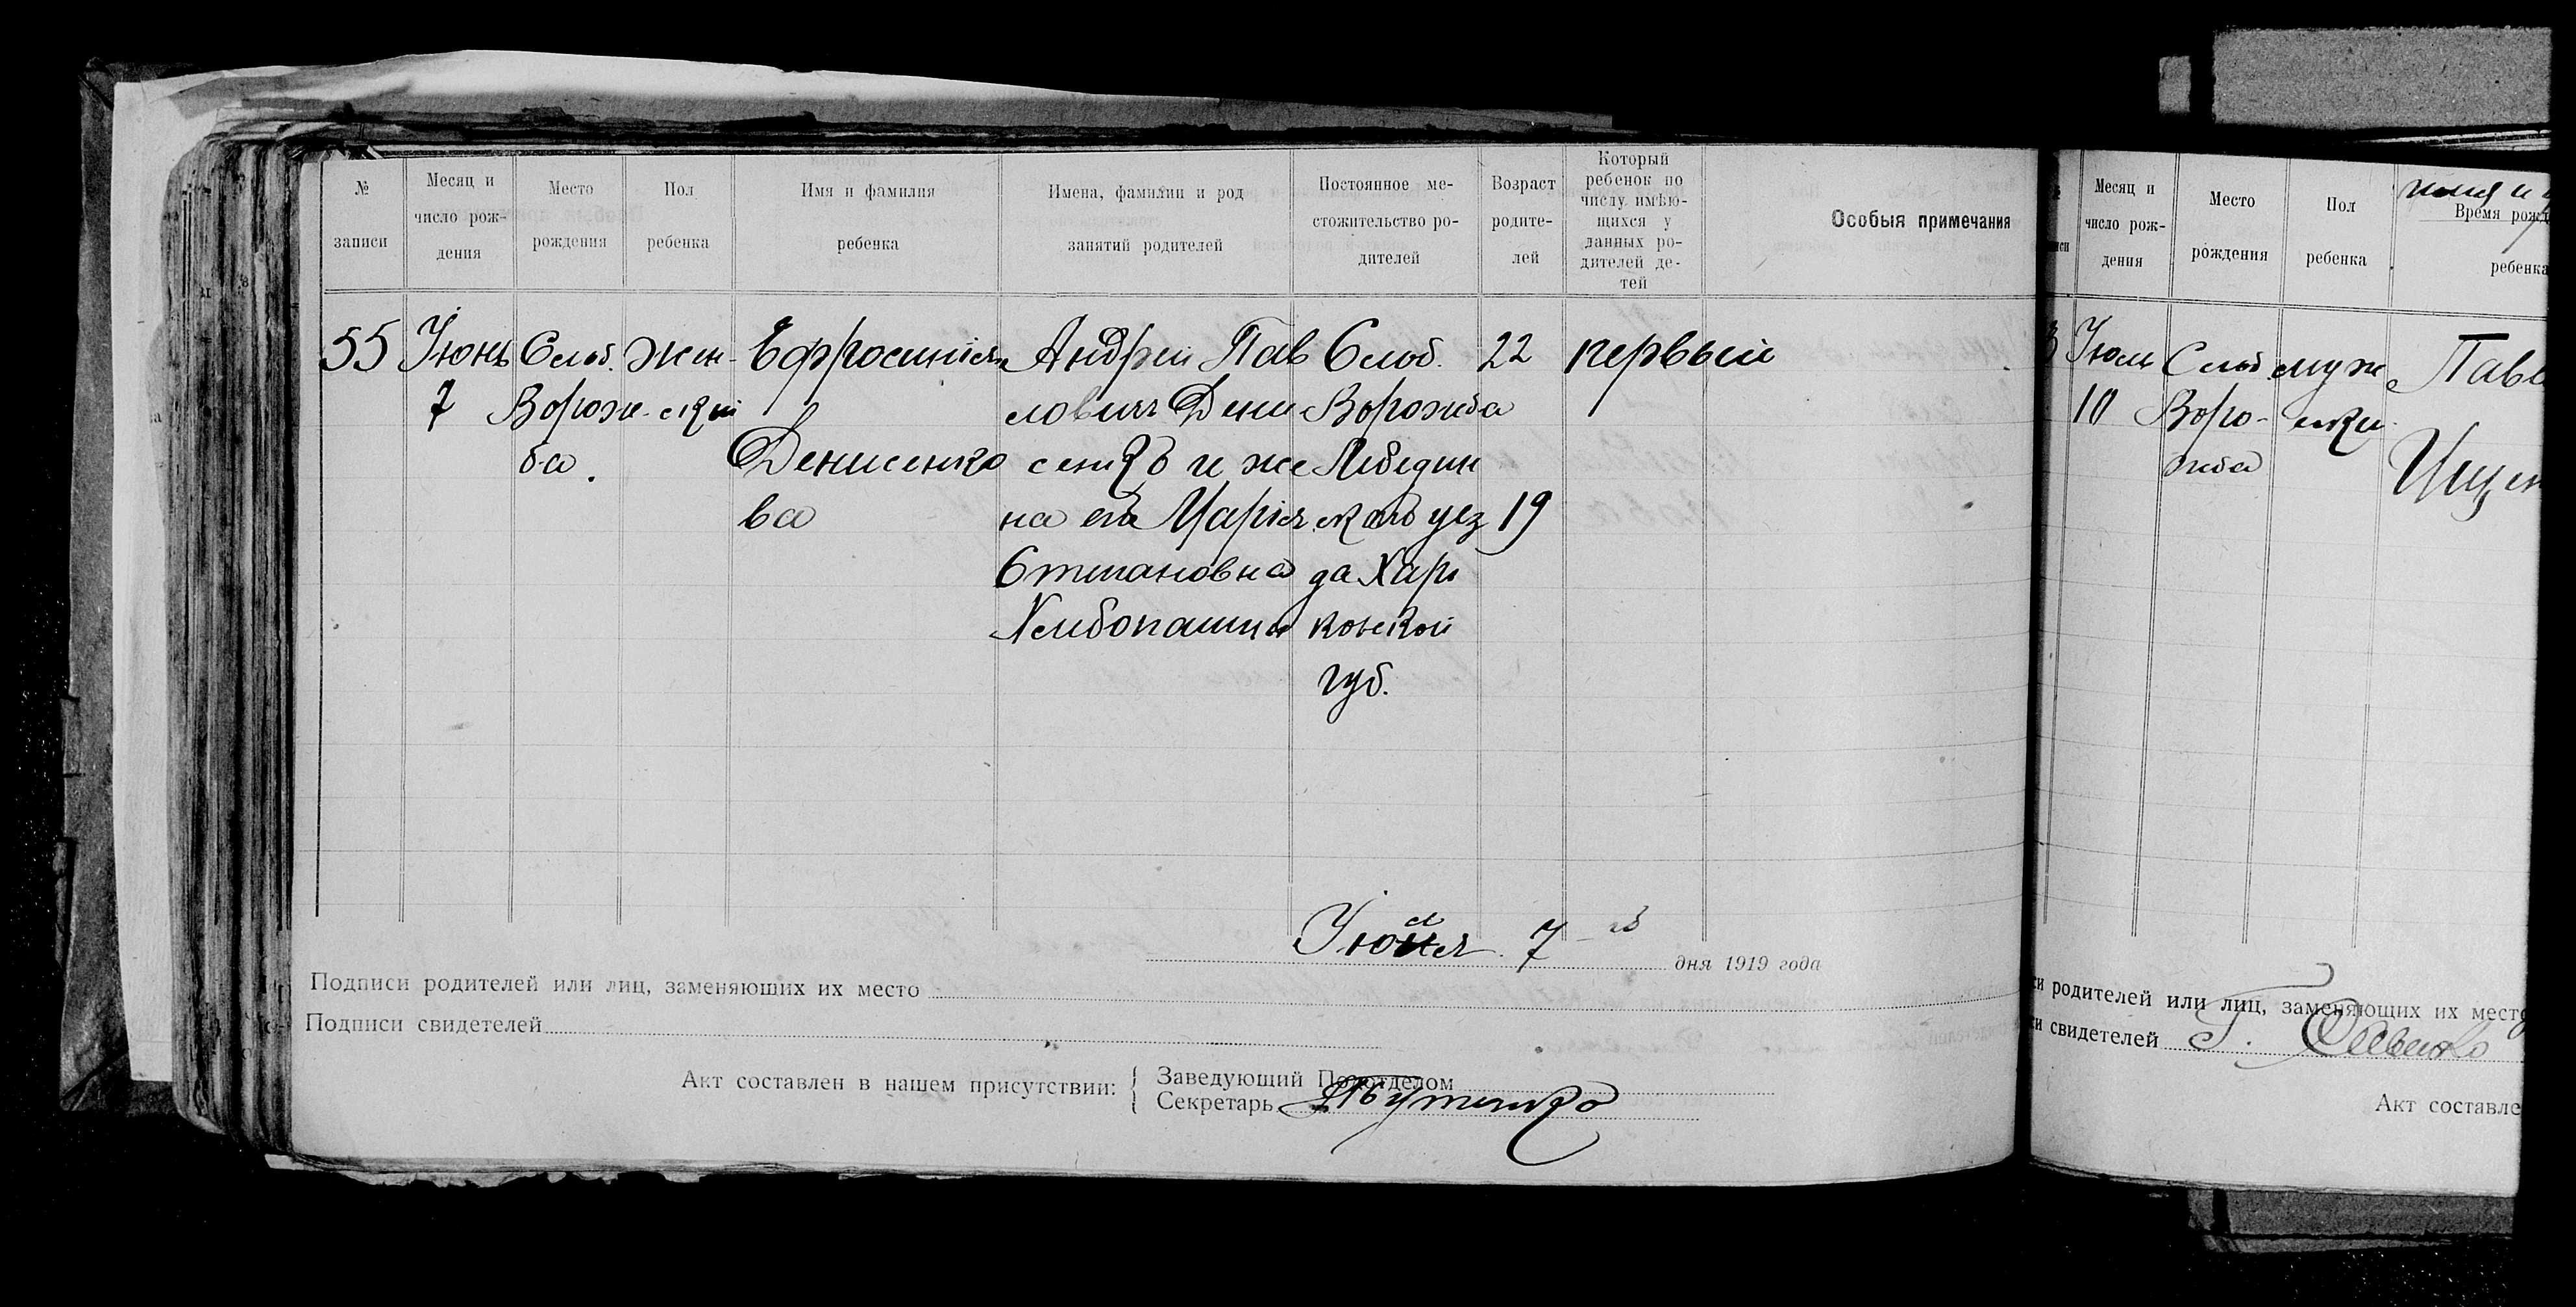 № записи
Месяц и число рождения
Место рождения
Пол ребенка
Имя и фамилия ребенка
Имена, фамилии и род занятий родителей
Постоянное местожительство родителей
Возраст родителей
Который ребенок по числу имѣющихся у данных родителей детей
Особыя примечания
55
Июнь
7
Слоб.
Ворож-
ба.
Жен-
скій
Ефросинія
Денисенко
ва
Андрей Пав
ловичъ Дени
сенко и же
на его Марія
Степановна
Хлибопашцы
Слоб.
Ворожба
Лебедин
скаго уез
да Харь
ковской
губ.
22
19
первый
Июля 7-го дня 1919 года
Подписи родителей или лиц, заменяюших их место
Подписи свидетелей
Акт составлен в нашем присутствии:
Заведующий Подотделом
Секретарь
Месяц и число рождения
Место рождения
Пол ребенка
Время рожд
ребенка
Июль
10
Слоб.
Воро-
жба
муж
ски-
Павл
Ищен
си родителей или лиц, заменяющих их место
си свидетелей
Г. Савенко
Акт составле